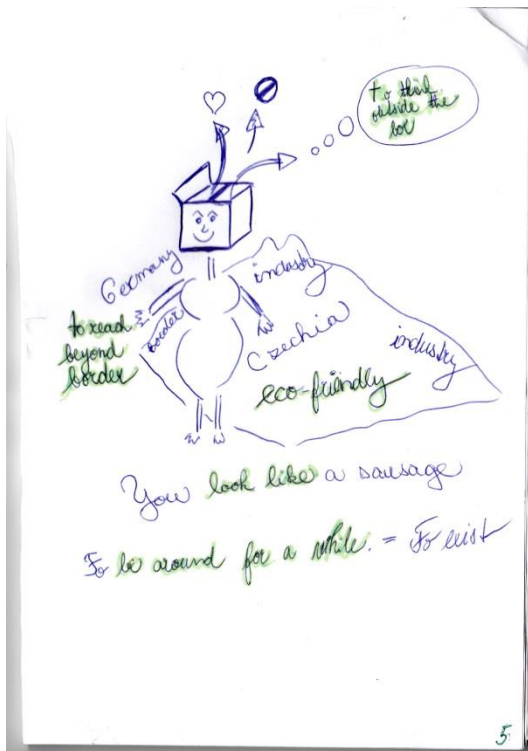 to think
outside the
box
Germany
industry
to reach
beyond
border
border
Czechia
industry
eco-friendly
You look like a sausage
To be around for a while. = To exist
5